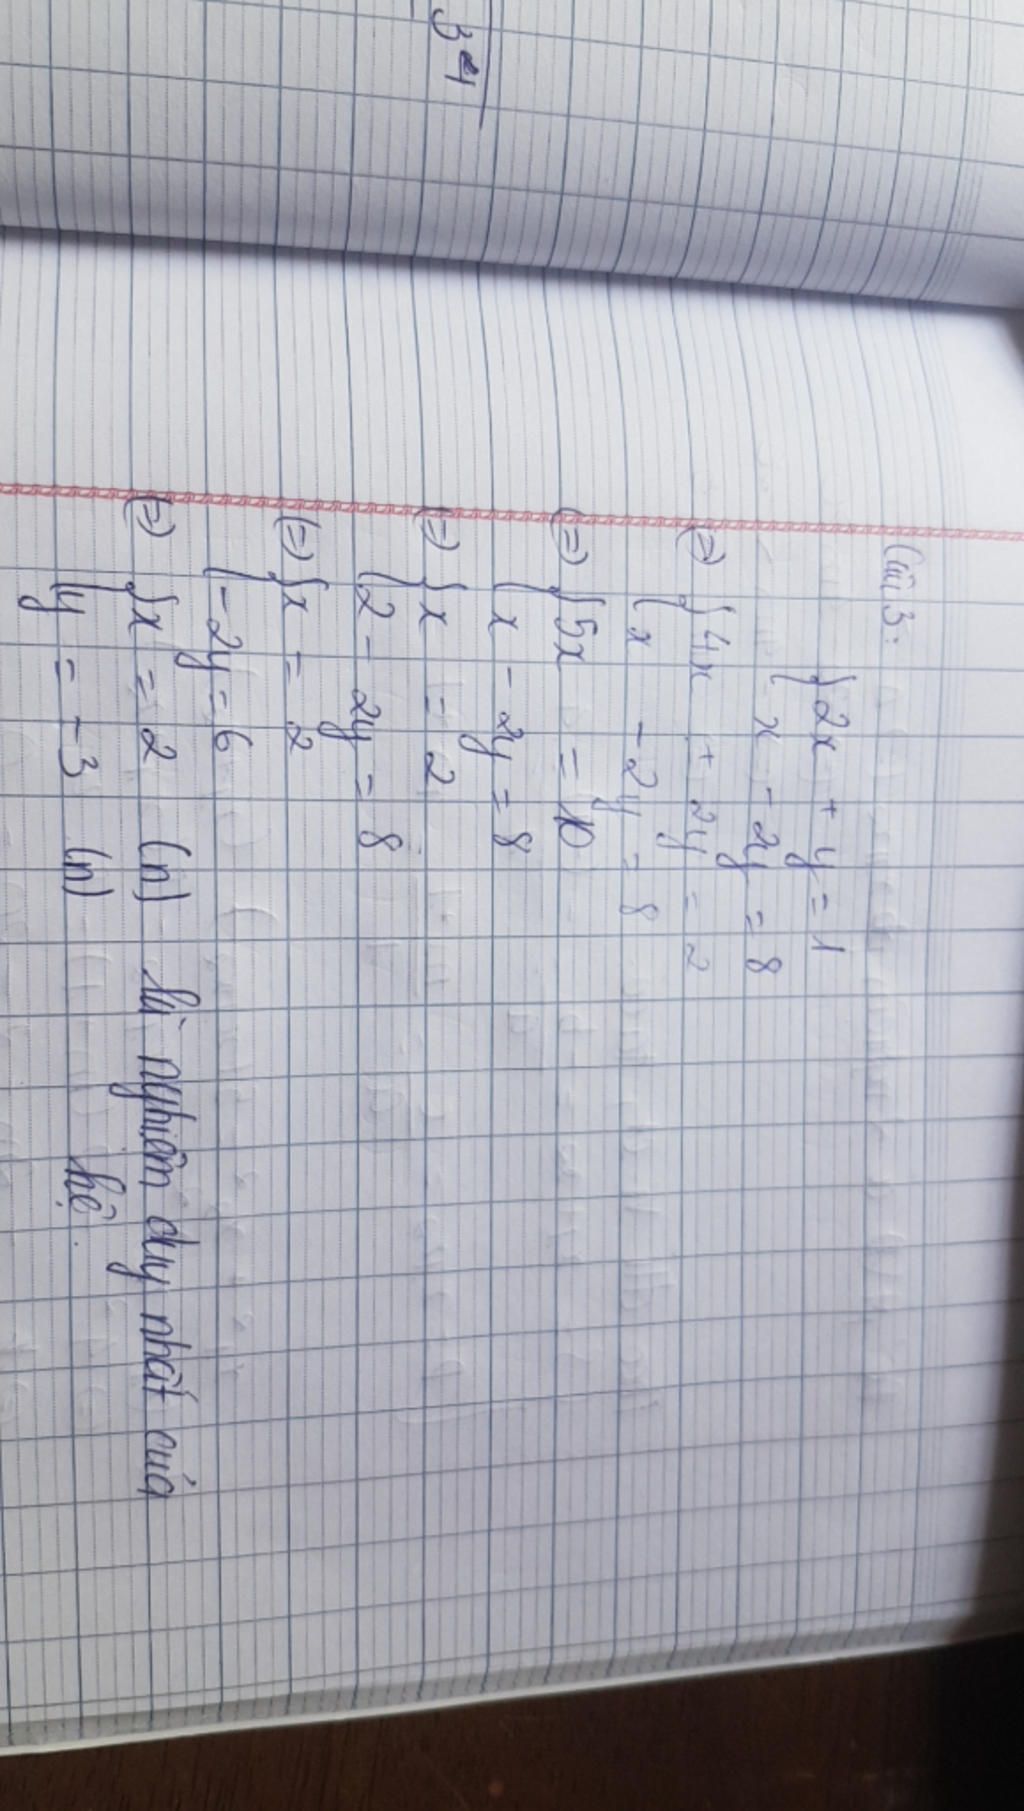 Câu 3:
{ 2x + y = 1
{ x - 2y = 8
(=) { 4x + 2y = 2
{ x - 2y = 8
(=) { 5x = 10
{ x - 2y = 8
(=) { x = 2
{ 2 - 2y = 8
(=) { x = 2
{ -2y = 6
(=) { x = 2 (n) là nghiệm duy nhất của
{ y = -3 (n) hệ.